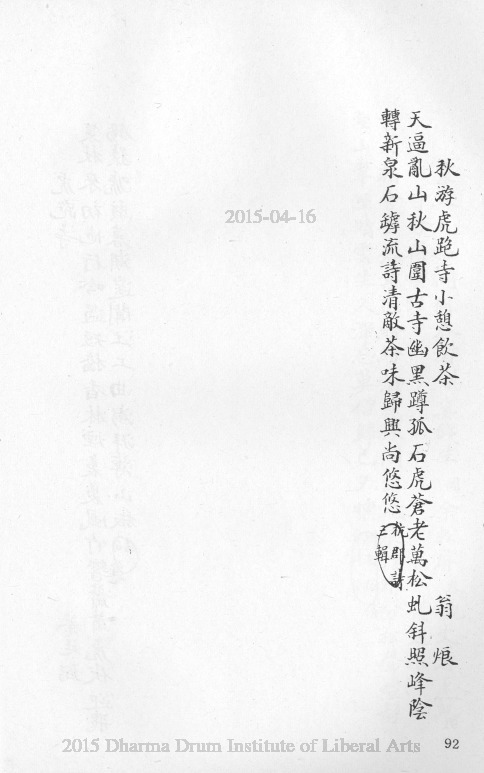 秋游虎跑寺小憩飲茶　翁烺
天逼亂山秋山圍古寺幽黑蹲孤石虎蒼老萬松虬斜照峰陰
轉新泉石罅流詩清敵茶味歸興尚悠悠 杭郡詩三輯
2015-04-16
2015 Dharma Drum Institute of Liberal Arts
92